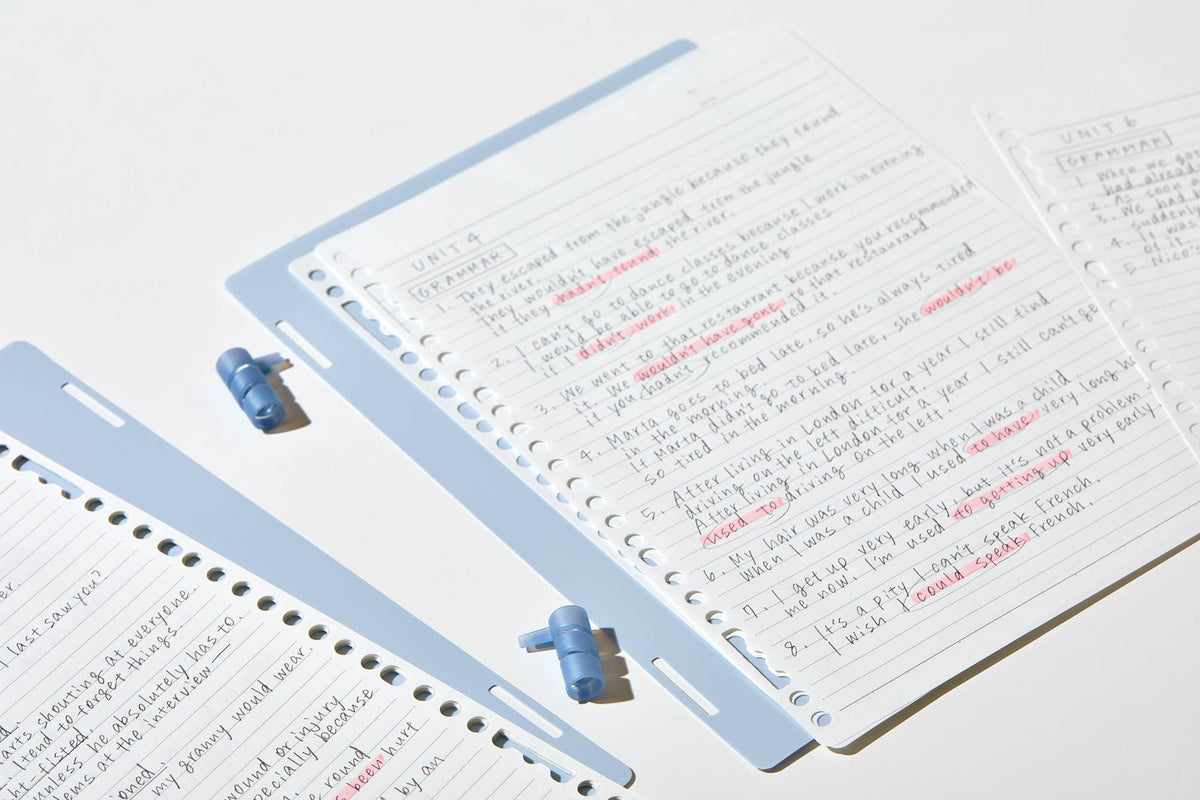 UNIT 4
GRAMMAR
1. They escaped from the jungle because they found
the river.
They wouldn't have escaped from the jungle
if they hadn't found the river.
2. I can't go to dance classes because I work in evening
I would be able to go to dance classes
if I didn't work in the evening.
3. We went to that restaurant because you recommended
it. We wouldn't have gone to that restaurand
if you hadn't recommended it.
4. Marta goes to bed late, so he's always tired
in the morning.
If Marta didn't go to bed late, she wouldn't be
so tired in the morning.
5. After living in London for a year I still find
driving on the left difficult.
After living in London for a year I still can't ge
used to driving on the left.
6. My hair was very long when I was a child
When I was a child I used to have very long h
7. I get up very early, but it's not a problem
me now. I'm used to getting up very early.
8. It's a pity I can't speak French.
I wish I could speak French.
UNIT 6
GRAMMAR
1. When we go
had alread
2. As soon a
3. We had
suddenl
4. It was
of it.
5. Nico
er.
I last saw you?
d.
arts shouting at everyone.
l I tend to forget things
ht-fisted.
unless he absolutely has to.
lems at the interview —
ioned.
my granny would wear.
wound or injury
pecially because
round
s been hurt
d by an